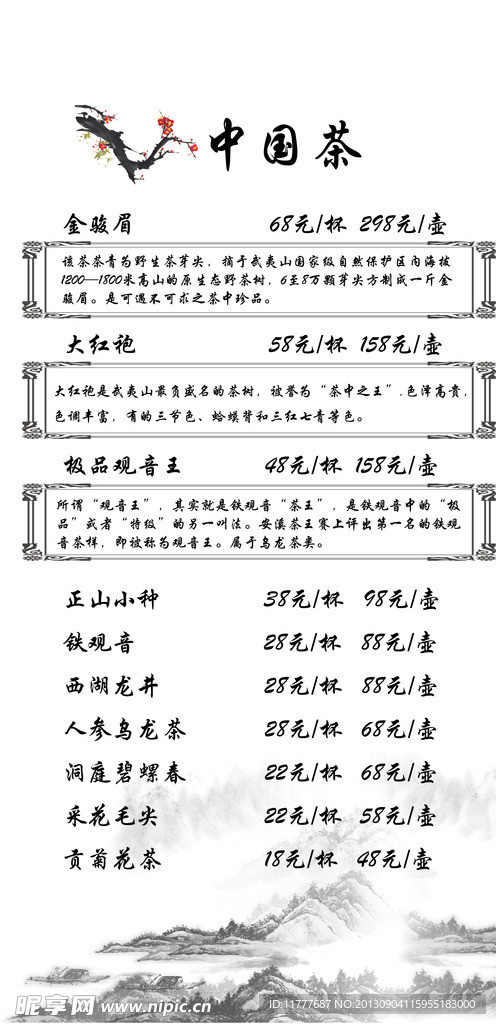 中国茶
金骏眉 68元/杯 298元/壶
该茶茶青为野生茶芽尖，摘于武夷山国家级自然保护区内海拔
1200—1800米高山的原生态野茶树，6至8万颗芽尖方制成一斤金
骏眉。是可遇不可求之茶中珍品。
大红袍 58元/杯 158元/壶
大红袍是武夷山最负盛名的茶树，被誉为“茶中之王”.色泽高贵，
色调丰富，有的三节色、蛤蟆背和三红七青等色。
极品观音王 48元/杯 158元/壶
所谓“观音王”，其实就是铁观音“茶王”，是铁观音中的“极
品”或者“特级”的另一叫法。安溪茶王赛上评出第一名的铁观
音茶样，即被称为观音王。属于乌龙茶类。
正山小种 38元/杯 98元/壶
铁观音 28元/杯 88元/壶
西湖龙井 28元/杯 88元/壶
人参乌龙茶 28元/杯 68元/壶
洞庭碧螺春 22元/杯 68元/壶
采花毛尖 22元/杯 58元/壶
贡菊花茶 18元/杯 48元/壶
昵享网 www.nipic.cn
ID:11777687 NO:20130904115955183000